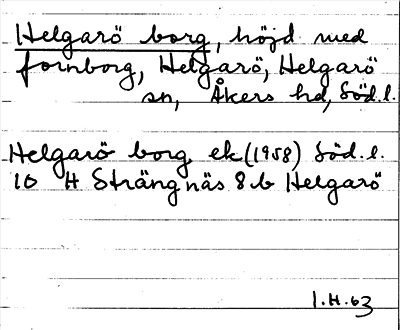 Helgarö borg, höjd med
fornborg, Helgarö, Helgarö
sn, Åkers hd, Söd.l.
Helgarö borg ek (1958) Söd.l.
10 H Strängnäs 8b Helgarö
1.H.63